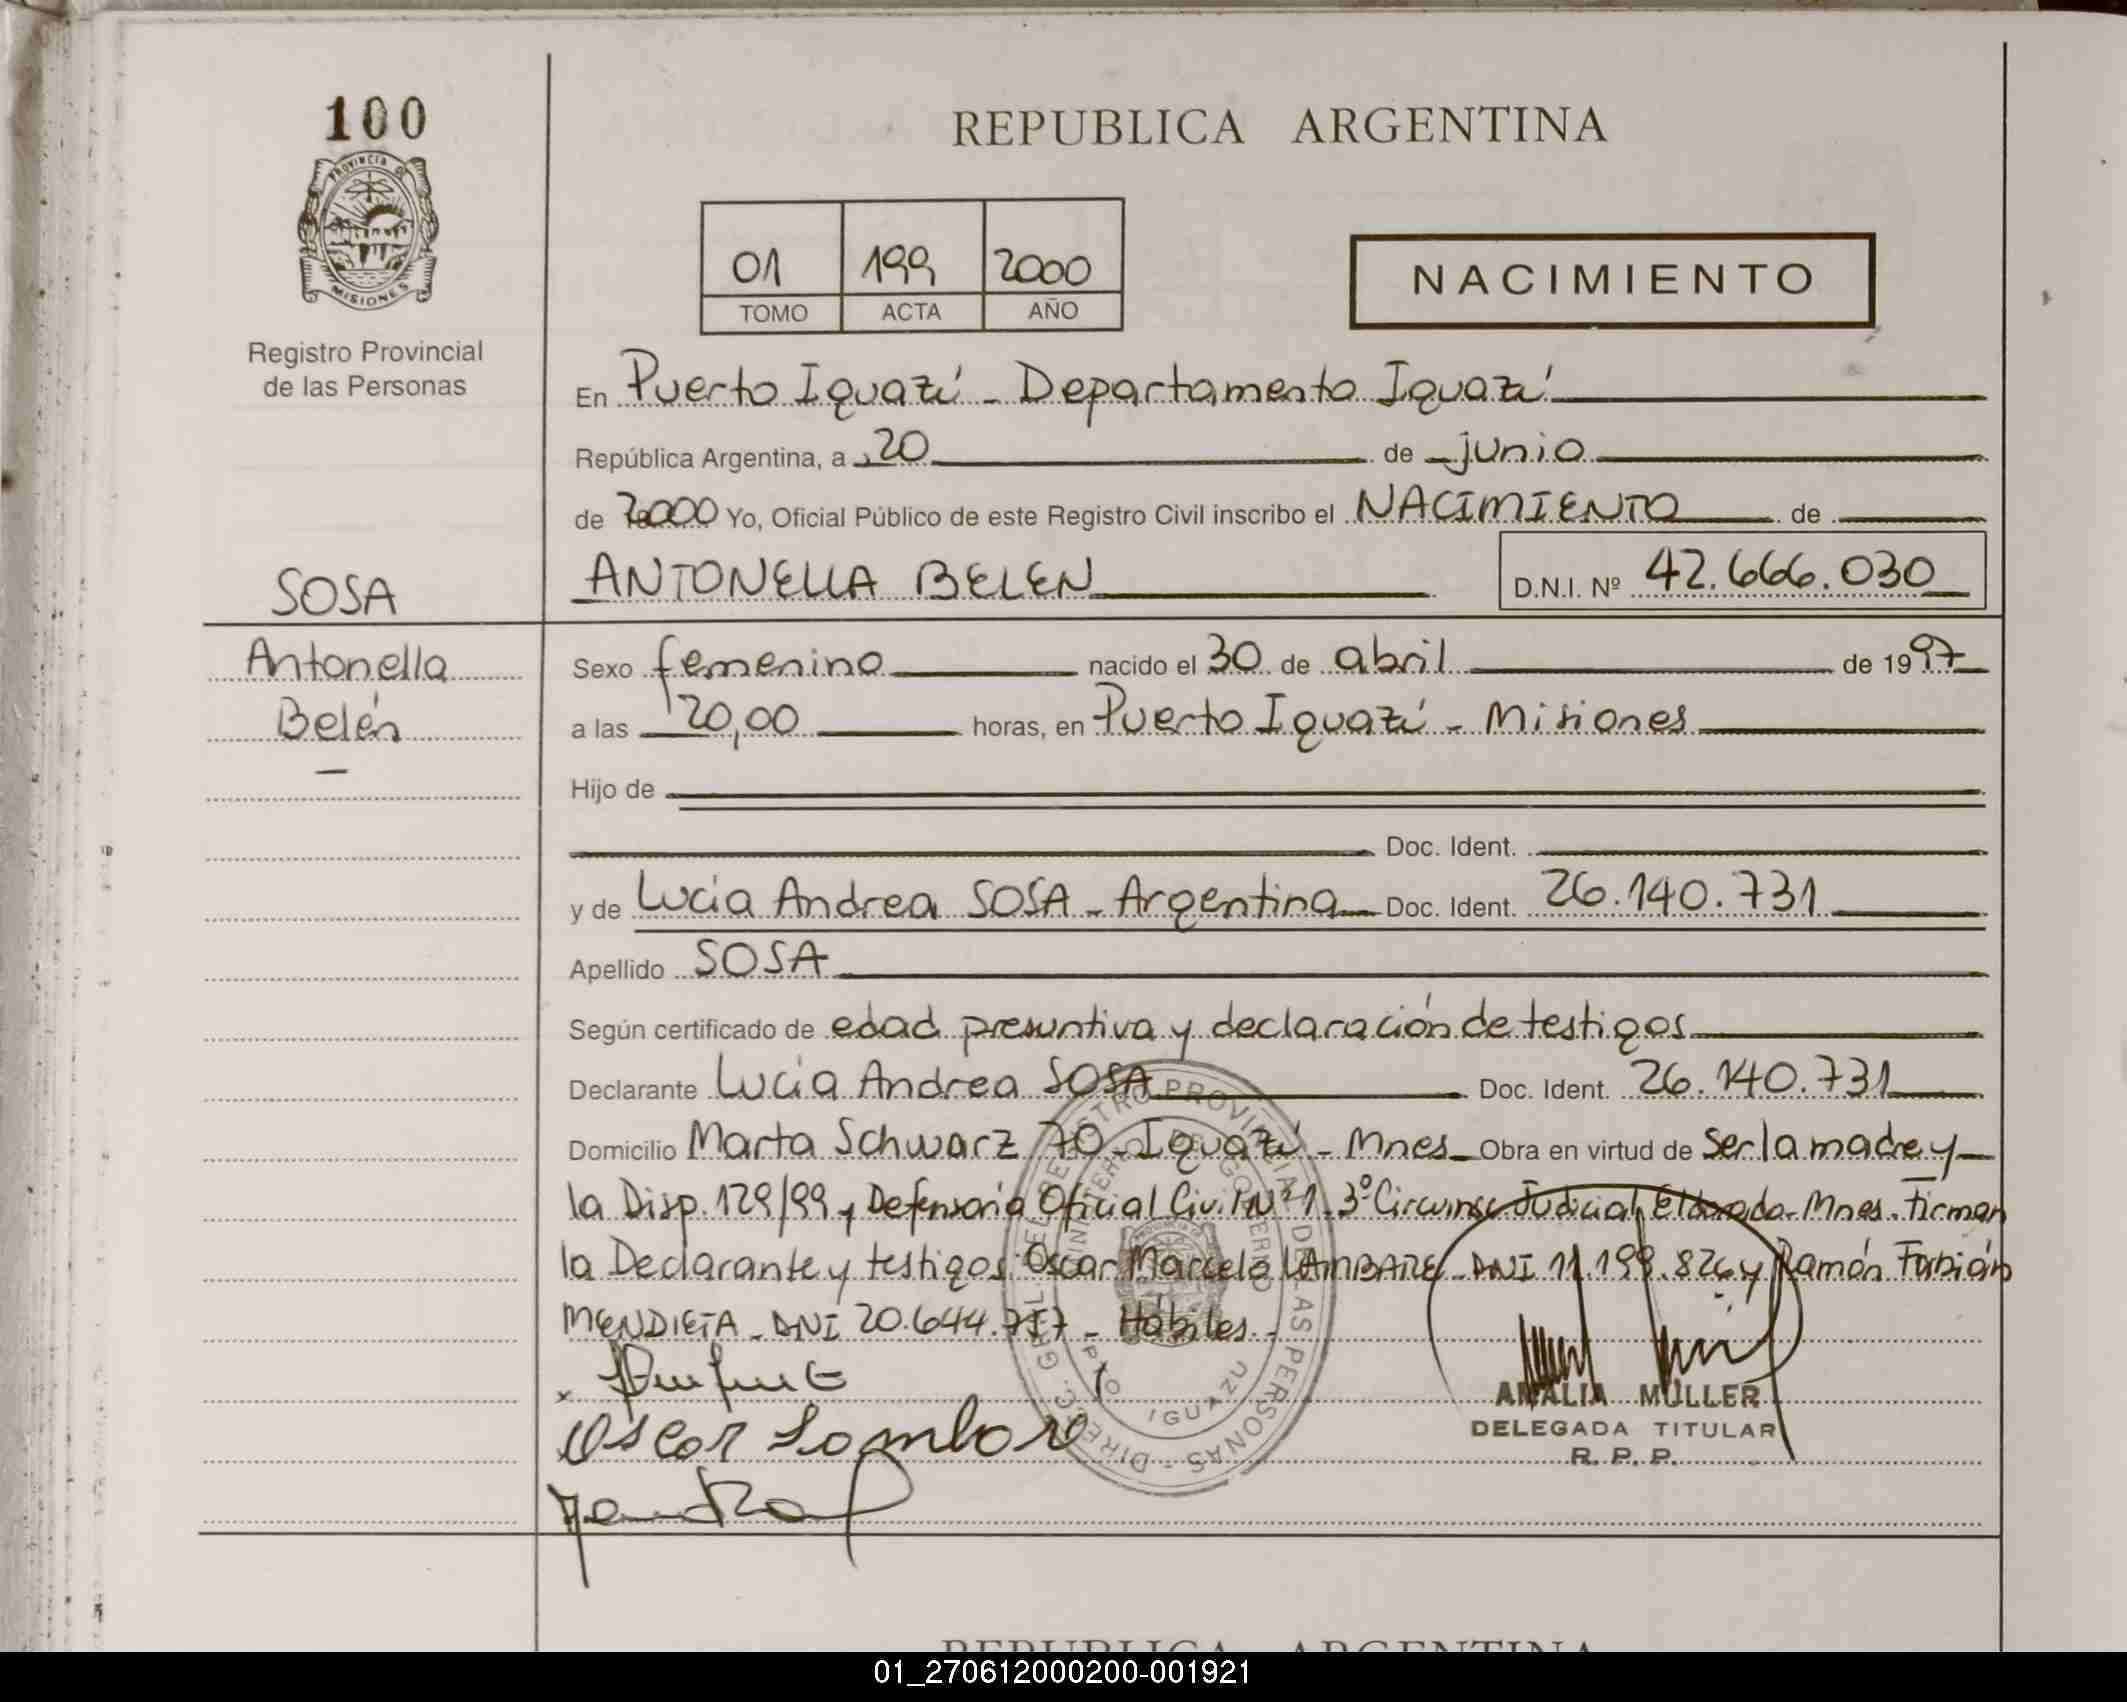 100
PROVINCIA DE
MISIONES
Registro Provincial
de las Personas
REPUBLICA ARGENTINA
01 199 2000
TOMO ACTA AÑO
NACIMIENTO
En Puerto Iguazú - Departamento Iguazú
República Argentina, a 20 de junio
de 2000 Yo, Oficial Público de este Registro Civil inscribo el NACIMIENTO de
SOSA
ANTONELLA BELEN D.N.I. Nº 42.666.030
Antonella
Belén
Sexo femenino nacido el 30 de abril de 1997
a las 20,00 horas, en Puerto Iguazú - Misiones
Hijo de
Doc. Ident.
y de Lucía Andrea SOSA - Argentina Doc. Ident. 26.140.731
Apellido SOSA
Según certificado de edad presuntiva y declaración de testigos
Declarante Lucía Andrea SOSA Doc. Ident. 26.140.731
Domicilio Marta Schwarz 70 - Iguazú - Mnes - Obra en virtud de ser la madre y
la Disp. 129/99 y Defensoría Oficial Civil Nº 1 - 3º Circunsc Judicial Eldorado - Mnes. Firman
la Declarante y testigos: Oscar Marcelo LAMBARE - DNI 11.199.826 y Ramón Fabián
MENDIETA - DNI 20.644.757 - Hábiles -
Oscar Lombare
DIREC. GRAL. DEL REGISTRO PROVINCIAL DE LAS PERSONAS
PTO IGUAZU
AMALIA MÜLLER
DELEGADA TITULAR
R. P. P.
REPUBLICA ARGENTINA
01_270612000200-001921